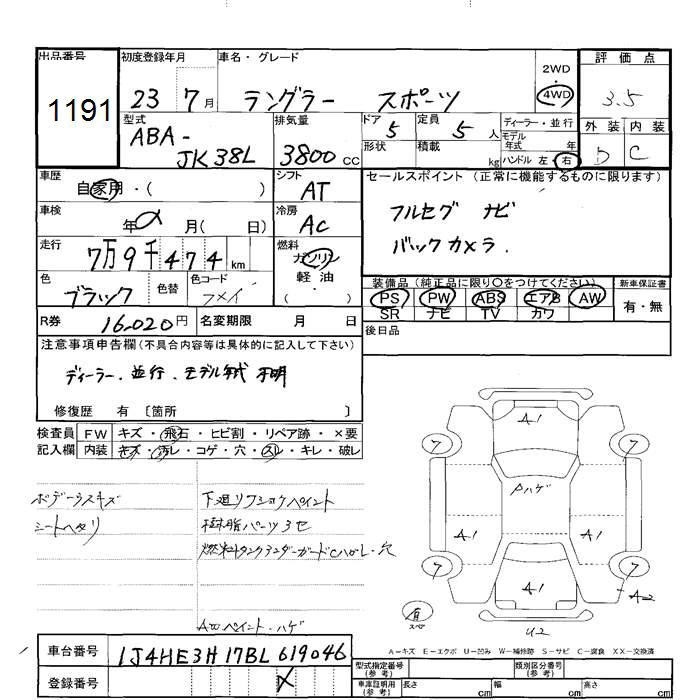 出品番号
1191
初度登録年月
23 7月
車名・グレード
ラングラー スポーツ
2WD
4WD
評価点
3.5
外装 内装
D C
型式
ABA-
JK38L
排気量
3800 CC
ドア 5
形状
定員 5 人
積載 kg
ディーラー・並行
モデル年式 年
ハンドル 左・右
車歴
自家用・( )
シフト
AT
セールスポイント(正常に機能するものに限ります)
フルセグ ナビ
バックカメラ.
車検
年 月( 日)
冷房
AC
走行
7万9千474 km
燃料
ガソリン
軽油
( ・ )
色
ブラック
色替
色コード
装備品(純正品に限り○をつけてください)
PS PW ABS エアB AW
SR ナビ TV カワ
新車保証書
有・無
R券 16,020円 名変期限 月 日
後日品
注意事項申告欄(不具合内容等は具体的に記入して下さい)
ディーラー.並行.モデル年式 不明
修復歴 有〔箇所 〕
検査員 FW キズ・飛石・ヒビ割・リペア跡・×要
記入欄 内装 キズ・汚レ・コゲ・穴・スレ・キレ・破レ
ボデーラスキズ
シートヘタリ
下廻リワショクペイント
樹脂パーツヨセ
燃料タンクアンダーガードCハガレ・穴
AWペイント・ハゲ
A1
7 7
Pハゲ
A1 A1
7 7
A1
A2
有
スペア
U2
A-キズ E-エクボ U-凹み W-補修跡 S-サビ C-腐食 XX-交換済
車台番号 1J4HE3H17BL619046
登録番号
型式指定番号
(参考)
類別区分番号
(参考)
車庫証明用
(参考)
長さ cm 幅 cm 高さ cm